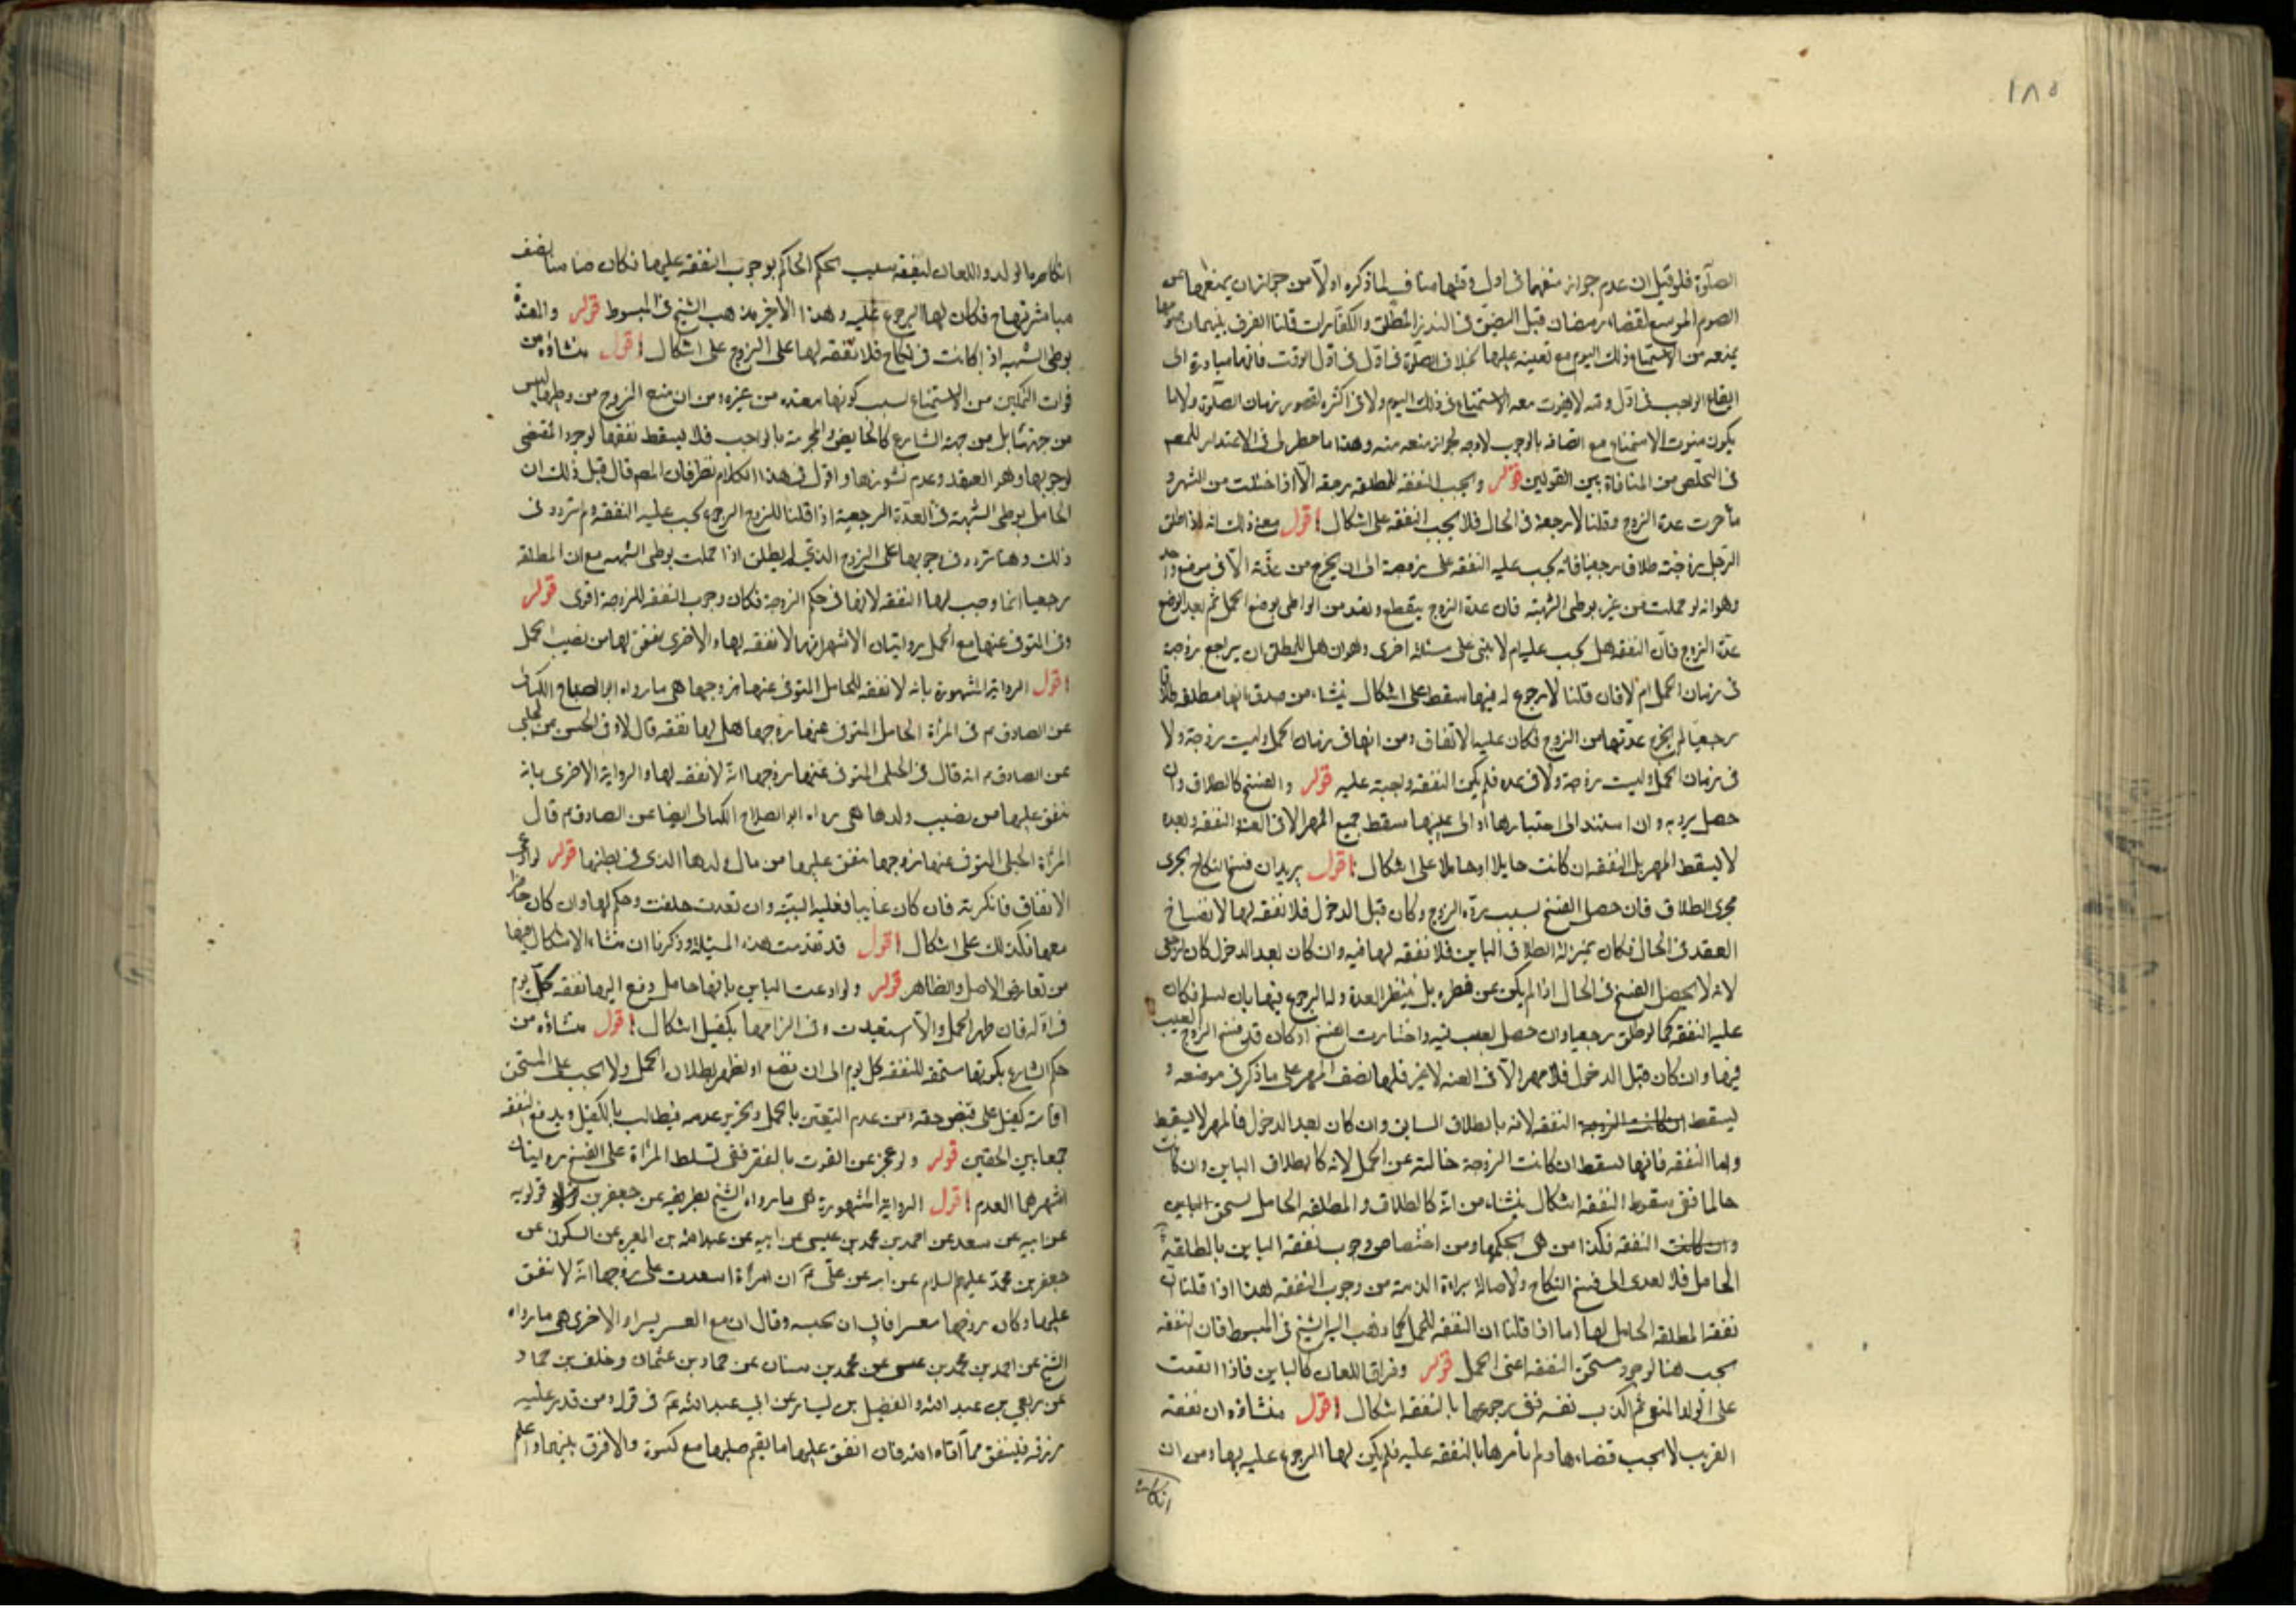 ١٨٥
الصلوة فلو قيل ان عدم جواز منعها فى اول وقتها مناف لما ذكره اولا من جواز ان يمنعها من
الصوم الموسع لقضاء رمضان قبل التضيق فى النذر المطلق والكفارات قلنا الفرق بينهما ان صومها
يمنعه من الاستمتاع ذلك اليوم مع تعينه عليها بخلاف الصلوة فى اول الوقت فانها مبادرة الى
ايقاع الواجب فى اول وقته لا يفوت معه الاستمتاع فى ذلك اليوم ولا فى اكثره لقصور زمان الصلوة ولا ما
يكون مفوت الاستمتاع مع اتصافه بالوجوب لا وجه لجواز منعه منه وهذا ما خطر لى فى الاعتذار للمصم
فى التخلص من المنافاة بين القولين قوله وتجب النفقة للمطلقة رجعة الا اذا حبلت من الشبهة و
تأخرت عدة الزوج وقلنا لا رجعة فى الحال فلا تجب النفقة على اشكال اقول معنى ذلك انه اذا طلق
الرجل زوجته طلاقا رجعيا فانه يجب عليه النفقة على زوجته الى ان يخرج من عدته الا فى موضع واحد
وهو انه لو حملت من غيره بوطى الشبهة فان عدة الزوج ينقطع وتعتد من الواطى بوضع الحمل ثم بعد الوضع
عدة الزوج فان النفقة هل تجب عليه ام لا يبنى على مسئلة اخرى وهو ان هل للمطلق ان يراجع زوجته
فى زمان الحمل ام لا فان قلنا لا رجوع له فيها سقط على اشكال ينشاء من صدق انها مطلقة طلاقا
رجعيا لم يخرج عدتها من الزوج فكان عليه الانفاق ومن انها فى زمان الحمل ليست زوجة ولا
فى زمان الحمل وليست زوجة ولا فى عدة فلم يكن النفقة واجبة عليه قوله والفسخ كالطلاق وان
حصل بردته وان استند الى اختيارها او الى عيبها سقط جميع المهر الا فى العنة النفقة وبعده
لا يسقط المهر بل النفقة ان كانت حايلا او حاملا على اشكال اقول يريد ان فسخ النكاح يجرى
مجرى الطلاق فان حصل الفسخ بسبب ردة الزوج وكان قبل الدخول فلا نفقة لها لانفساخ
العقد فى الحال فكان بمنزلة الطلاق الباين فلا نفقة لها فيه وان كان بعد الدخول كان كالرجعى
لانه لا يحصل الفسخ فى الحال اذا لم يكن عن فطرة بل ينتظر العدة وله الرجوع فيها بان يسلم فكان
عليه النفقة كما لو طلق رجعيا وان حصل لعيب فيه واختارت الفسخ او كان قد فسخ الزوج لعيب
فيها وان كان قبل الدخول فلا مهر الا فى العنة لا غير فلها نصف المهر على ما ذكر فى موضعه و
يسقط ان كانت الزوجة النفقة لانه بالطلاق السابق وان كان بعد الدخول فالمهر لا يسقط
واما النفقة فانها تسقط ان كانت الزوجة خالية عن الحمل لانه كالطلاق الباين وان كانت
حاملا ففى سقوط النفقة اشكال ينشاء من انه كالطلاق والمطلقة الحامل تستحق الباين
وان كانت النفقة فكذا من هى بحكمها ومن اختصاص وجوب نفقة الباين بالمطلقة
الحامل فلا تعدى الى فسخ النكاح ولاصالة براءة الذمة من وجوب النفقة هذا اذا قلنا ان
نفقة المطلقة الحامل لها اما اذا قلنا ان النفقة للحمل كما ذهب اليه الشيخ فى المبسوط فان النفقة
تجب هنا لوجود مستحق النفقة اعنى الحمل قوله وفراق اللعان كالباين فاذا انفقت
على الولد المنفى ثم اكذب نفسه ففى رجوعها بالنفقة اشكال اقول منشاؤه ان نفقة
القريب لا يجب قضاءها ولم يأمرها بالنفقة عليه فلم يكن لها الرجوع عليه بها ومن ان
انكاره
انكاره بالولد واللعان لنفقته سبب لحكم الحاكم بوجوب النفقة عليها فكان ضامنا لنفقة
مباشرتها فكان لها الرجوع عليه وهذا الاخير مذهب الشيخ فى المبسوط قوله والمعتدة
بوطى الشبهة اذا كانت فى نكاح فلا نفقة لها على الزوج على اشكال اقول منشاؤه من
فوات التمكين من الاستمتاع بسبب كونها معتدة من غيره ومن ان منع الزوج من وطيها ليس
من جهتها بل من جهة الشارع كالحايض والمحرمة بالواجب فلا يسقط نفقتها لوجود المقتضى
لوجوبها وهو العقد وعدم نشوزها واقول فى هذا الكلام نظر فان المصم قال قبل ذلك ان
الحامل بوطى الشبهة فى العدة الرجعية اذا قلنا للزوج الرجوع يجب عليه النفقة ولم يتردد فى
ذلك وهنا تردد فى وجوبها على الزوج الذى لم يطلق اذا حملت بوطى الشبهة مع ان المطلقة
رجعيا انما وجب لها النفقة لانها فى حكم الزوجة فكان وجوب النفقة للزوجة اقوى قوله
وفى المتوفى عنها مع الحمل روايتان الاشهر انه لا نفقة لها والاخرى ينفق لها من نصيب الحمل
اقول الرواية المشهورة بانه لا نفقة للحامل المتوفى عنها زوجها هى ما رواه ابو الصباح الكنانى
عن الصادق ع فى المرأة الحامل المتوفى عنها زوجها هل لها نفقة قال لا وفى الحسن عن الحلبى
عن الصادق ع انه قال فى الحبلى المتوفى عنها زوجها انه لا نفقة لها والرواية الاخرى بانه
ينفق عليها من نصيب ولدها هى رواه ابو الصلاح الكنانى ايضا عن الصادق ع قال
المرأة الحبلى المتوفى عنها زوجها ينفق عليها من مال ولدها الذى فى بطنها قوله لو ادعى
الانفاق فانكرته فان كان غايبا فعليه البينة وان تعذرت حلفت وحكم لها وان كان حاضرا
معها فكذلك على اشكال اقول قد تقدمت هذه المسئلة وذكرنا ان منشاء الاشكال فيها
من تعارض الاصل والظاهر قوله ولو ادعت الباين بانها حامل دفع اليها نفقة كل يوم
فى اوله فان ظهر الحمل والا استعيدت وفى الزامها بكفيل اشكال اقول منشاؤه من
حكم الشارع بكونها مستحقة للنفقة كل يوم الى ان تضع او يظهر بطلان الحمل ولا يجب على المستحق
اقامة كفيل على قبض حقه ومن عدم التيقن بالحمل وتجويز عدمه فيطالب بالكفيل ويدفع النفقة
جمعا بين الحقين قوله ولو عجز عن القوت بالفقر ففى تسلط المرأة على الفسخ روايتان
اشهرهما العدم اقول الرواية المشهورة هى ما رواه الشيخ بطريقه عن جعفر بن قولويه
عن ابيه عن سعد عن احمد بن محمد بن عيسى عن ابيه عن عبد الله بن المغيرة عن السكونى عن
جعفر بن محمد عليهم السلام عن ابيه عن على ع ان امرأة استعدت على زوجها انه لا ينفق
عليها وكان زوجها معسرا فابى ان يحبسه وقال ان مع العسر يسرا والاخرى هى ما رواه
الشيخ عن احمد بن محمد بن عيسى عن محمد بن سنان عن حماد بن عثمان وخلف بن حماد
عن ربعى بن عبد الله والفضيل بن يسار عن ابى عبد الله ع فى قوله ومن قدر عليه
رزقه فلينفق مما آتاه الله فان انفق عليها ما يقيم صلبها مع كسوة والا فرق بينهما واعلم